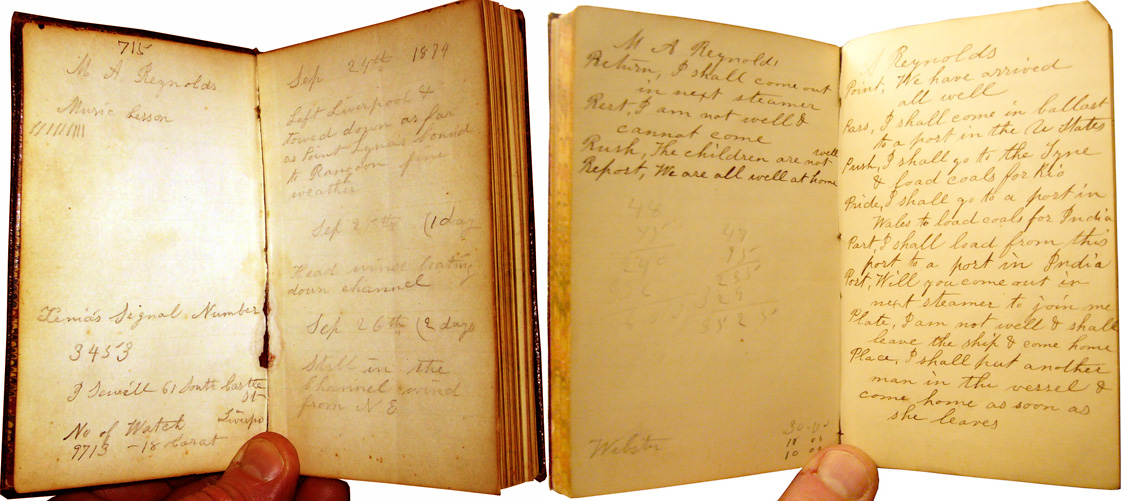 715
M A Reynolds
Music Lesson
Xenia's Signal Number
3453
J Sewill 61 South Castle
St
Liverpo
No of Watch
9713 - 18 Carat
Sep 24th 1874
Left Liverpool &
towed down as far
as Point Lynas bound
to Rangoon fine
weather
Sep 25th (1 day
Head wind beating
down channel
Sep 26th (2 days
Still in the
Channel wind
from N E
M A Reynolds
Return, I shall come out
in next steamer
Rest, I am not well &
cannot come
Rush, The children are not well
Report, We are all well at home
48
45
240
49
35
235
Webster
30-0
10
10
J Reynolds
Point, We have arrived
all well
Pass, I shall come in ballast
to a port in the U States
Push, I shall go to the Tyne
& load coals for Rio
Pride, I shall go to a port in
Wales to load coals for India
Part, I shall load from this
port to a port in India
Port, Will you come out in
next steamer to join me
Plate, I am not well & shall
leave the ship & come home
Place, I shall put another
man in the vessel &
come home as soon as
she leaves